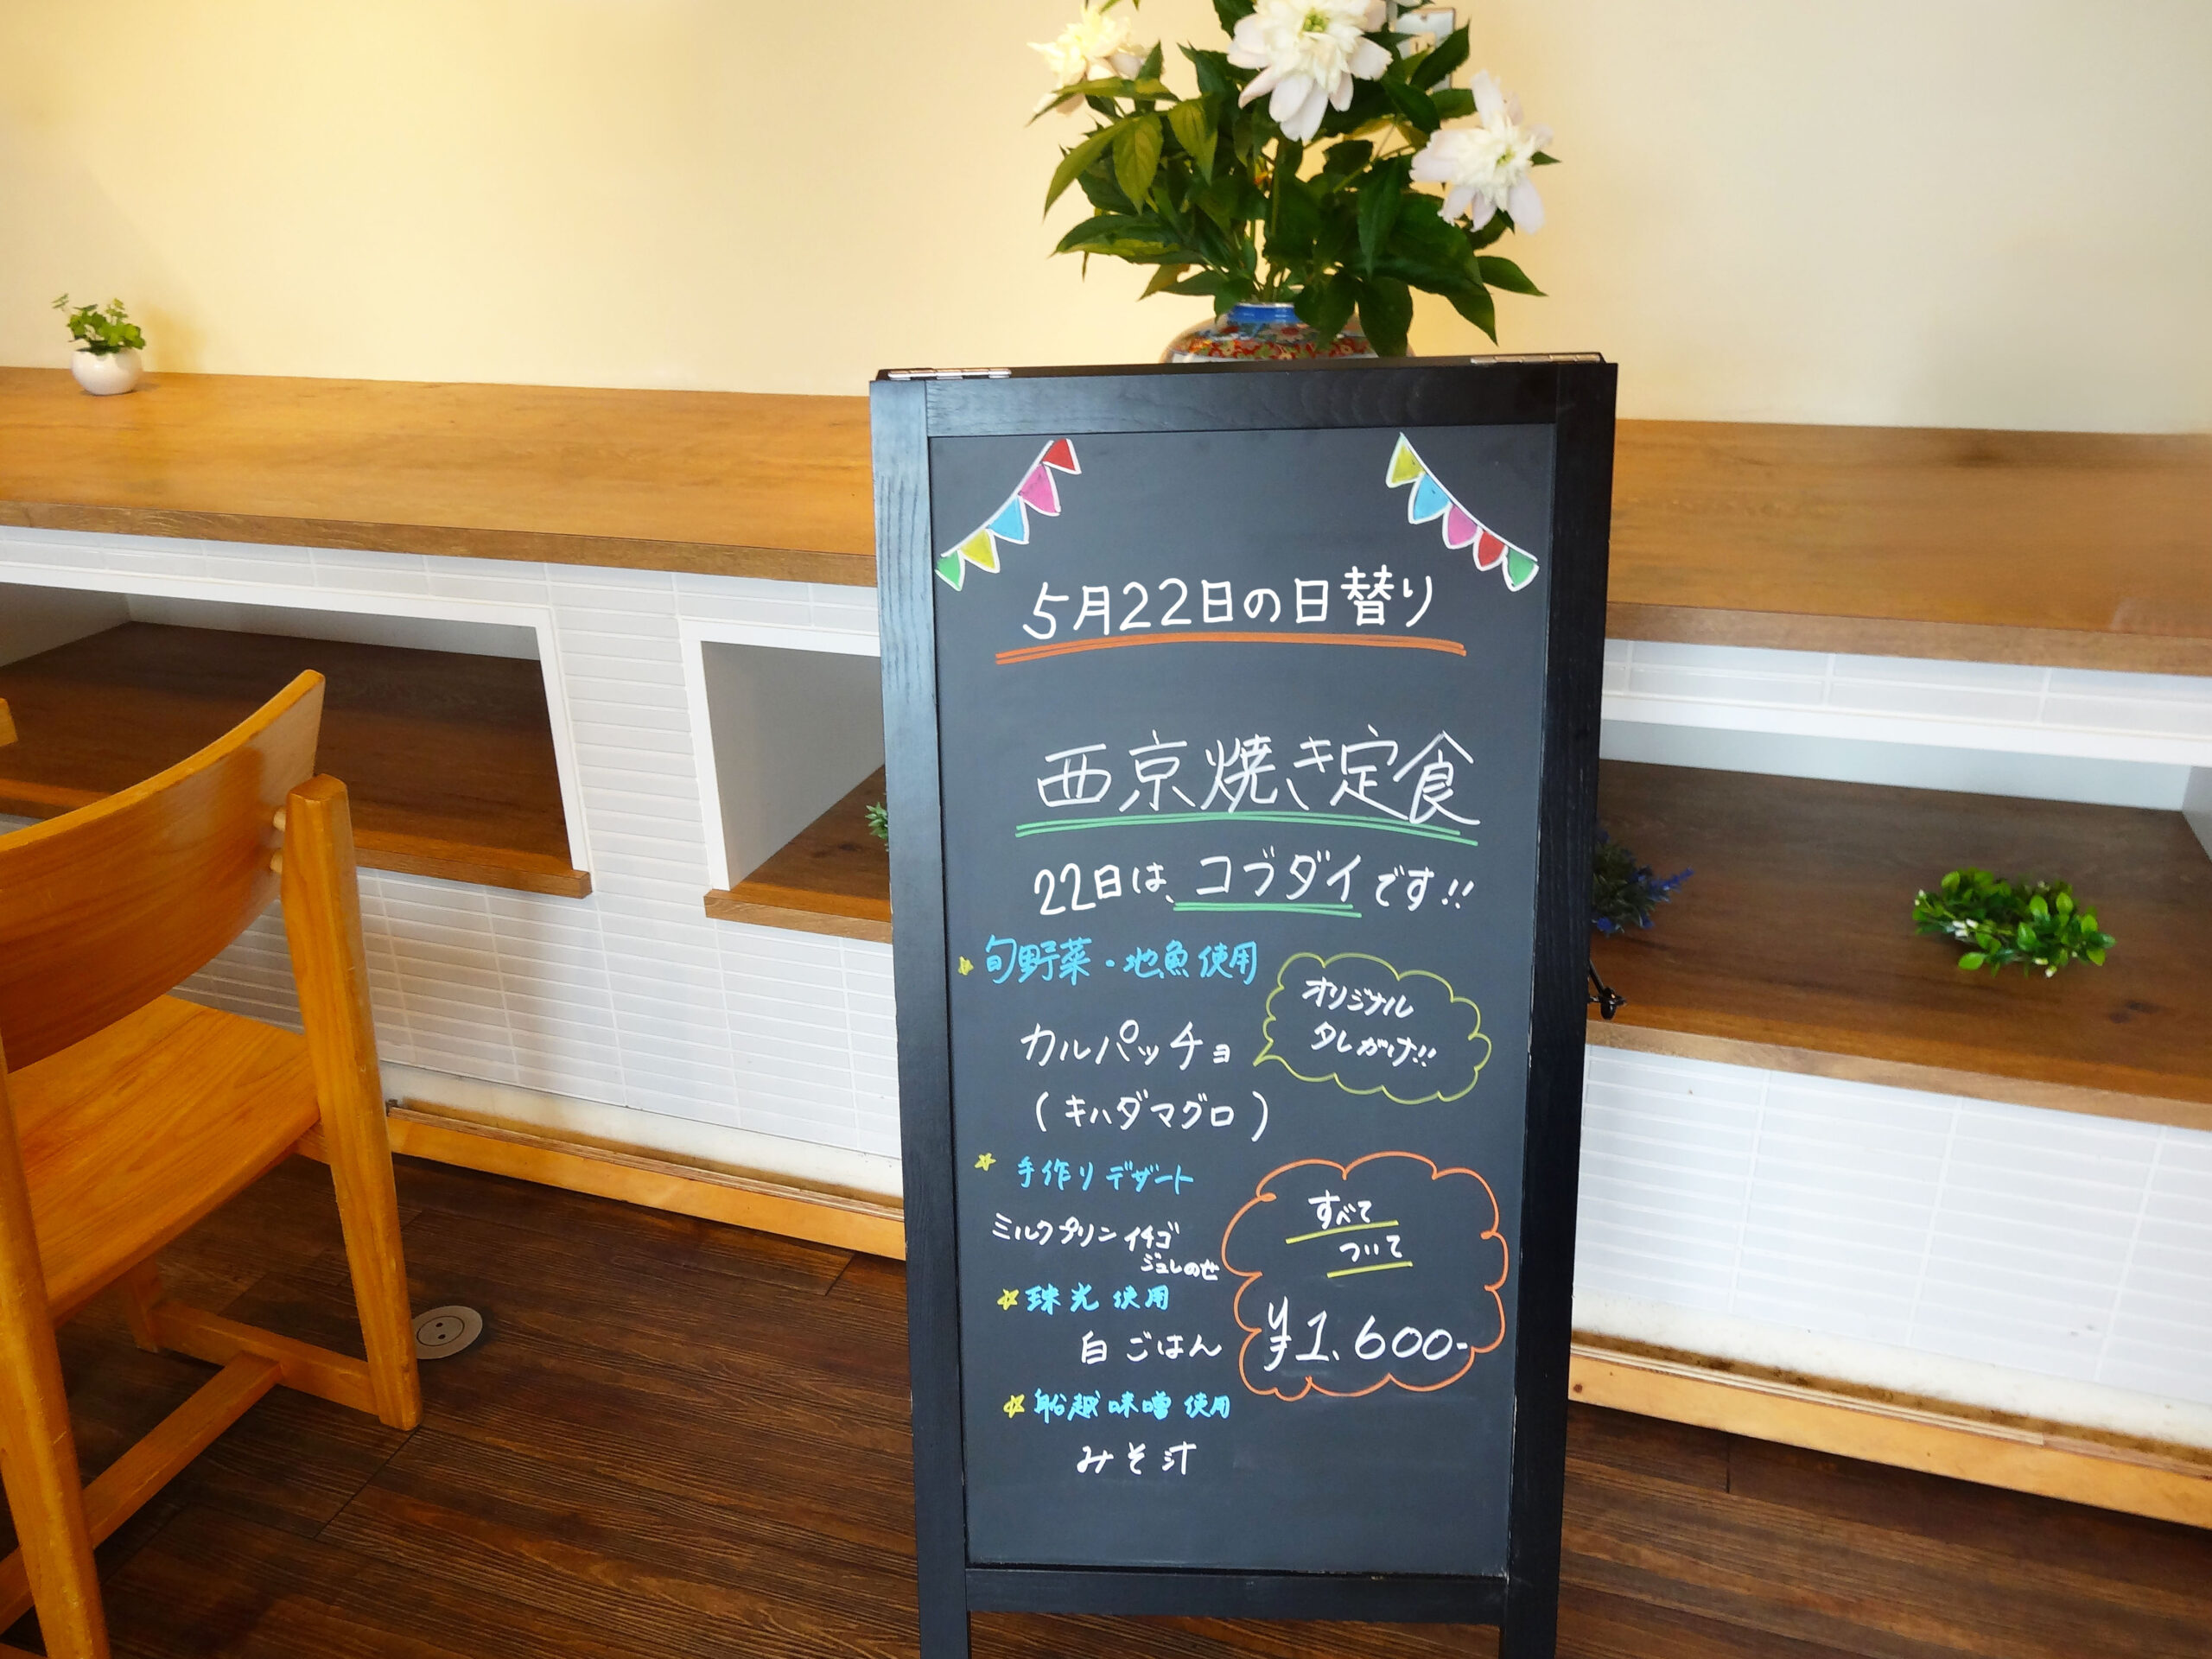 5月22日の日替り
西京焼き定食
22日は、コブダイです!!
旬野菜・地魚使用
カルパッチョ
(キハダマグロ)
オリジナル
タレがけ!!
手作りデザート
ミルクプリンイチゴ
ジュレのせ
珠光使用
白ごはん
船越味噌使用
みそ汁
すべて
ついて
¥1.600-